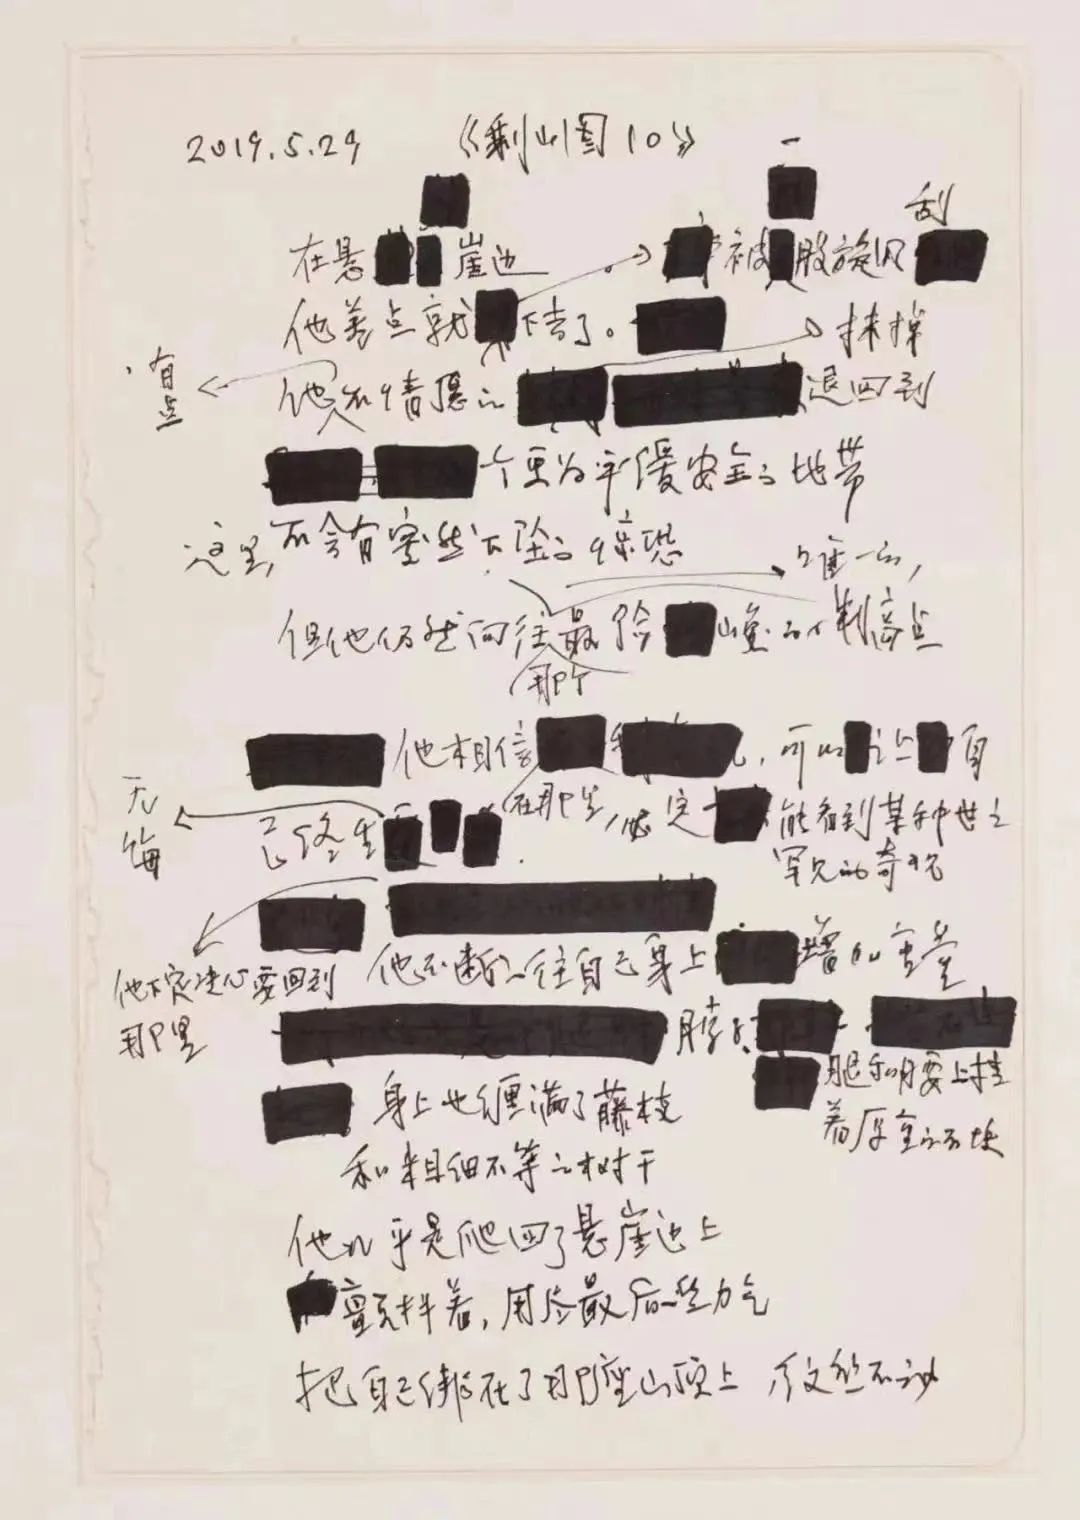 2019.5.29 《剩山图10》
一
刮
在悬崖边 被股旋风
他差点就下去了。 抹掉
有点
他不情愿的退回到
一个更为平缓安全的地带
这里,不会有突然下坠的惊恐
唯一的,
但他仍然向往最险峰的制高点
那个
他相信 ,可以让自
在那里,必定能看到某种世上
罕见的奇观
己终生
无悔
他下定决心要回到
那里
他不断的往自己身上增加重量
脖子
腿和腰上挂
着厚重的石块
身上也缠满了藤枝
和粗细不等的树干
他几乎是爬回了悬崖边上
颤抖着,用尽最后一些力气
把自己绑在了那座山顶上 纹丝不动